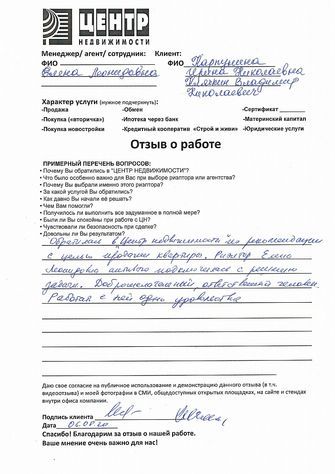 ЦЕНТР
НЕДВИЖИМОСТИ
Менеджер/ агент/ сотрудник: Клиент:
ФИО ФИО Карпушина
Елена Леонидовна Ирина Николаевна
Владимир
Николаевич
Характер услуги (нужное подчеркнуть):
-Продажа -Обмен -Сертификат
-Покупка «вторичка») -Ипотека через банк -Материнский капитал
-Покупка новостройки -Кредитный кооператив «Строй и живи» -Юридические услуги
Отзыв о работе
ПРИМЕРНЫЙ ПЕРЕЧЕНЬ ВОПРОСОВ:
• Почему Вы обратились в "ЦЕНТР НЕДВИЖИМОСТИ"?
• Что было особенно важно для Вас при выборе риэлтора или агентства?
• Почему Вы выбрали именно этого риэлтора?
• За какой услугой Вы обратились?
• Как давно Вы начали её решать?
• Чем Вам помогли?
• Получилось ли выполнить все задуманное в полной мере?
• Были ли Вы спокойны при работе с ЦН?
• Чувствовали ли безопасность при сделке?
• Довольны ли Вы результатом?
Обратились в Центр недвижимости по рекомендации
с целью продажи квартиры. Риэлтор Елена
Леонидовна активно подключилась к решению
задачи. Доброжелательный, ответственный человек.
Работать с ней одно удовольствие.
Даю свое согласие на публичное использование и демонстрацию данного отзыва (в т.ч.
видеоотзыва) и моей фотографии в СМИ, общедоступных открытых площадках, на сайте и стендах
внутри офиса компании.
Подпись клиента
Дата
Спасибо! Благодарим за отзыв о нашей работе.
Ваше мнение очень важно для нас!